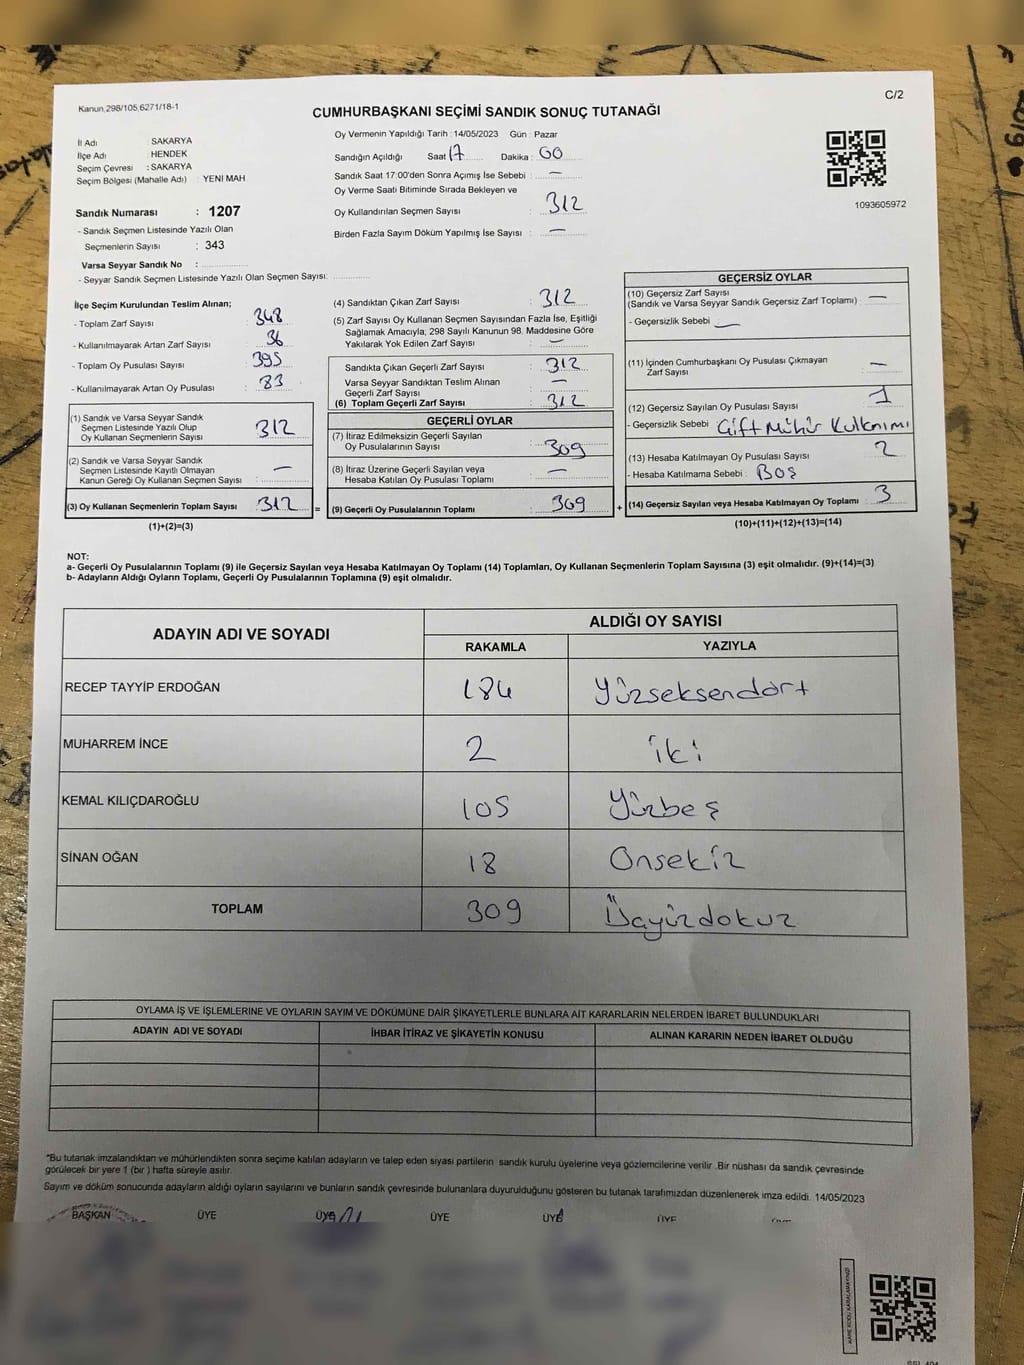 Kanun,298/105,6271/18-1
C/2
CUMHURBAŞKANI SEÇİMİ SANDIK SONUÇ TUTANAĞI
İl Adı : SAKARYA
İlçe Adı : HENDEK
Seçim Çevresi : SAKARYA
Seçim Bölgesi (Mahalle Adı) : YENI MAH
Sandık Numarası : 1207
- Sandık Seçmen Listesinde Yazılı Olan
Seçmenlerin Sayısı : 343
Varsa Seyyar Sandık No :
- Seyyar Sandık Seçmen Listesinde Yazılı Olan Seçmen Sayısı:
Oy Vermenin Yapıldığı Tarih : 14/05/2023 Gün : Pazar
Sandığın Açıldığı Saat : 17 Dakika : 00
Sandık Saat 17:00'den Sonra Açımış İse Sebebi : —
Oy Verme Saati Bitiminde Sırada Bekleyen ve
Oy Kullandırılan Seçmen Sayısı : 312
Birden Fazla Sayım Döküm Yapılmış İse Sayısı : —
1093605972
İlçe Seçim Kurulundan Teslim Alınan;
- Toplam Zarf Sayısı : 348
- Kullanılmayarak Artan Zarf Sayısı : 36
- Toplam Oy Pusulası Sayısı : 395
- Kullanılmayarak Artan Oy Pusulası : 83
(1) Sandık ve Varsa Seyyar Sandık
Seçmen Listesinde Yazılı Olup
Oy Kullanan Seçmenlerin Sayısı : 312
(2) Sandık ve Varsa Seyyar Sandık
Seçmen Listesinde Kayıtlı Olmayan
Kanun Gereği Oy Kullanan Seçmen Sayısı : —
(3) Oy Kullanan Seçmenlerin Toplam Sayısı : 312
(1)+(2)=(3)
(4) Sandıktan Çıkan Zarf Sayısı : 312
(5) Zarf Sayısı Oy Kullanan Seçmen Sayısından Fazla İse, Eşitliği
Sağlamak Amacıyla; 298 Sayılı Kanunun 98. Maddesine Göre
Yakılarak Yok Edilen Zarf Sayısı : —
Sandıkta Çıkan Geçerli Zarf Sayısı : 312
Varsa Seyyar Sandıktan Teslim Alınan
Geçerli Zarf Sayısı : —
(6) Toplam Geçerli Zarf Sayısı : 312
GEÇERLİ OYLAR
(7) İtiraz Edilmeksizin Geçerli Sayılan
Oy Pusulalarının Sayısı : 309
(8) İtiraz Üzerine Geçerli Sayılan veya
Hesaba Katılan Oy Pusulası Toplamı : —
= (9) Geçerli Oy Pusulalarının Toplamı : 309
GEÇERSİZ OYLAR
(10) Geçersiz Zarf Sayısı
(Sandık ve Varsa Seyyar Sandık Geçersiz Zarf Toplamı) : —
- Geçersizlik Sebebi : —
(11) İçinden Cumhurbaşkanı Oy Pusulası Çıkmayan
Zarf Sayısı : —
(12) Geçersiz Sayılan Oy Pusulası Sayısı : 1
- Geçersizlik Sebebi : Çift Mühür Kullanımı
(13) Hesaba Katılmayan Oy Pusulası Sayısı : 2
- Hesaba Katılmama Sebebi : Boş
+ (14) Geçersiz Sayılan veya Hesaba Katılmayan Oy Toplamı : 3
(10)+(11)+(12)+(13)=(14)
NOT:
a- Geçerli Oy Pusulalarının Toplamı (9) ile Geçersiz Sayılan veya Hesaba Katılmayan Oy Toplamı (14) Toplamları, Oy Kullanan Seçmenlerin Toplam Sayısına (3) eşit olmalıdır. (9)+(14)=(3)
b- Adayların Aldığı Oyların Toplamı, Geçerli Oy Pusulalarının Toplamına (9) eşit olmalıdır.
ADAYIN ADI VE SOYADI ALDIĞI OY SAYISI
RAKAMLA YAZIYLA
RECEP TAYYİP ERDOĞAN 184 Yüzseksendört
MUHARREM İNCE 2 iki
KEMAL KILIÇDAROĞLU 105 Yüzbeş
SİNAN OĞAN 18 Onsekiz
TOPLAM 309 Üçyüzdokuz
OYLAMA İŞ VE İŞLEMLERİNE VE OYLARIN SAYIM VE DÖKÜMÜNE DAİR ŞİKAYETLERLE BUNLARA AİT KARARLARIN NELERDEN İBARET BULUNDUKLARI
ADAYIN ADI VE SOYADI İHBAR İTİRAZ VE ŞİKAYETİN KONUSU ALINAN KARARIN NEDEN İBARET OLDUĞU
*Bu tutanak imzalandıktan ve mühürlendikten sonra seçime katılan adayların ve talep eden siyasi partilerin sandık kurulu üyelerine veya gözlemcilerine verilir. Bir nüshası da sandık çevresinde
görülecek bir yere 1 (bir) hafta süreyle asılır.
Sayım ve döküm sonucunda adayların aldığı oyların sayılarını ve bunların sandık çevresinde bulunanlara duyurulduğunu gösteren bu tutanak tarafımızdan düzenlenerek imza edildi. 14/05/2023
BAŞKAN ÜYE ÜYE ÜYE ÜYE ÜYE